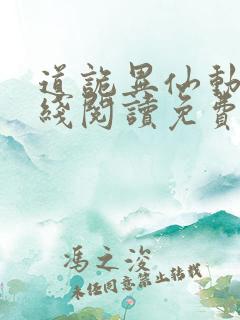 道詭異仙動
綫閱讀免費
馮之浚
未经同意禁止转载